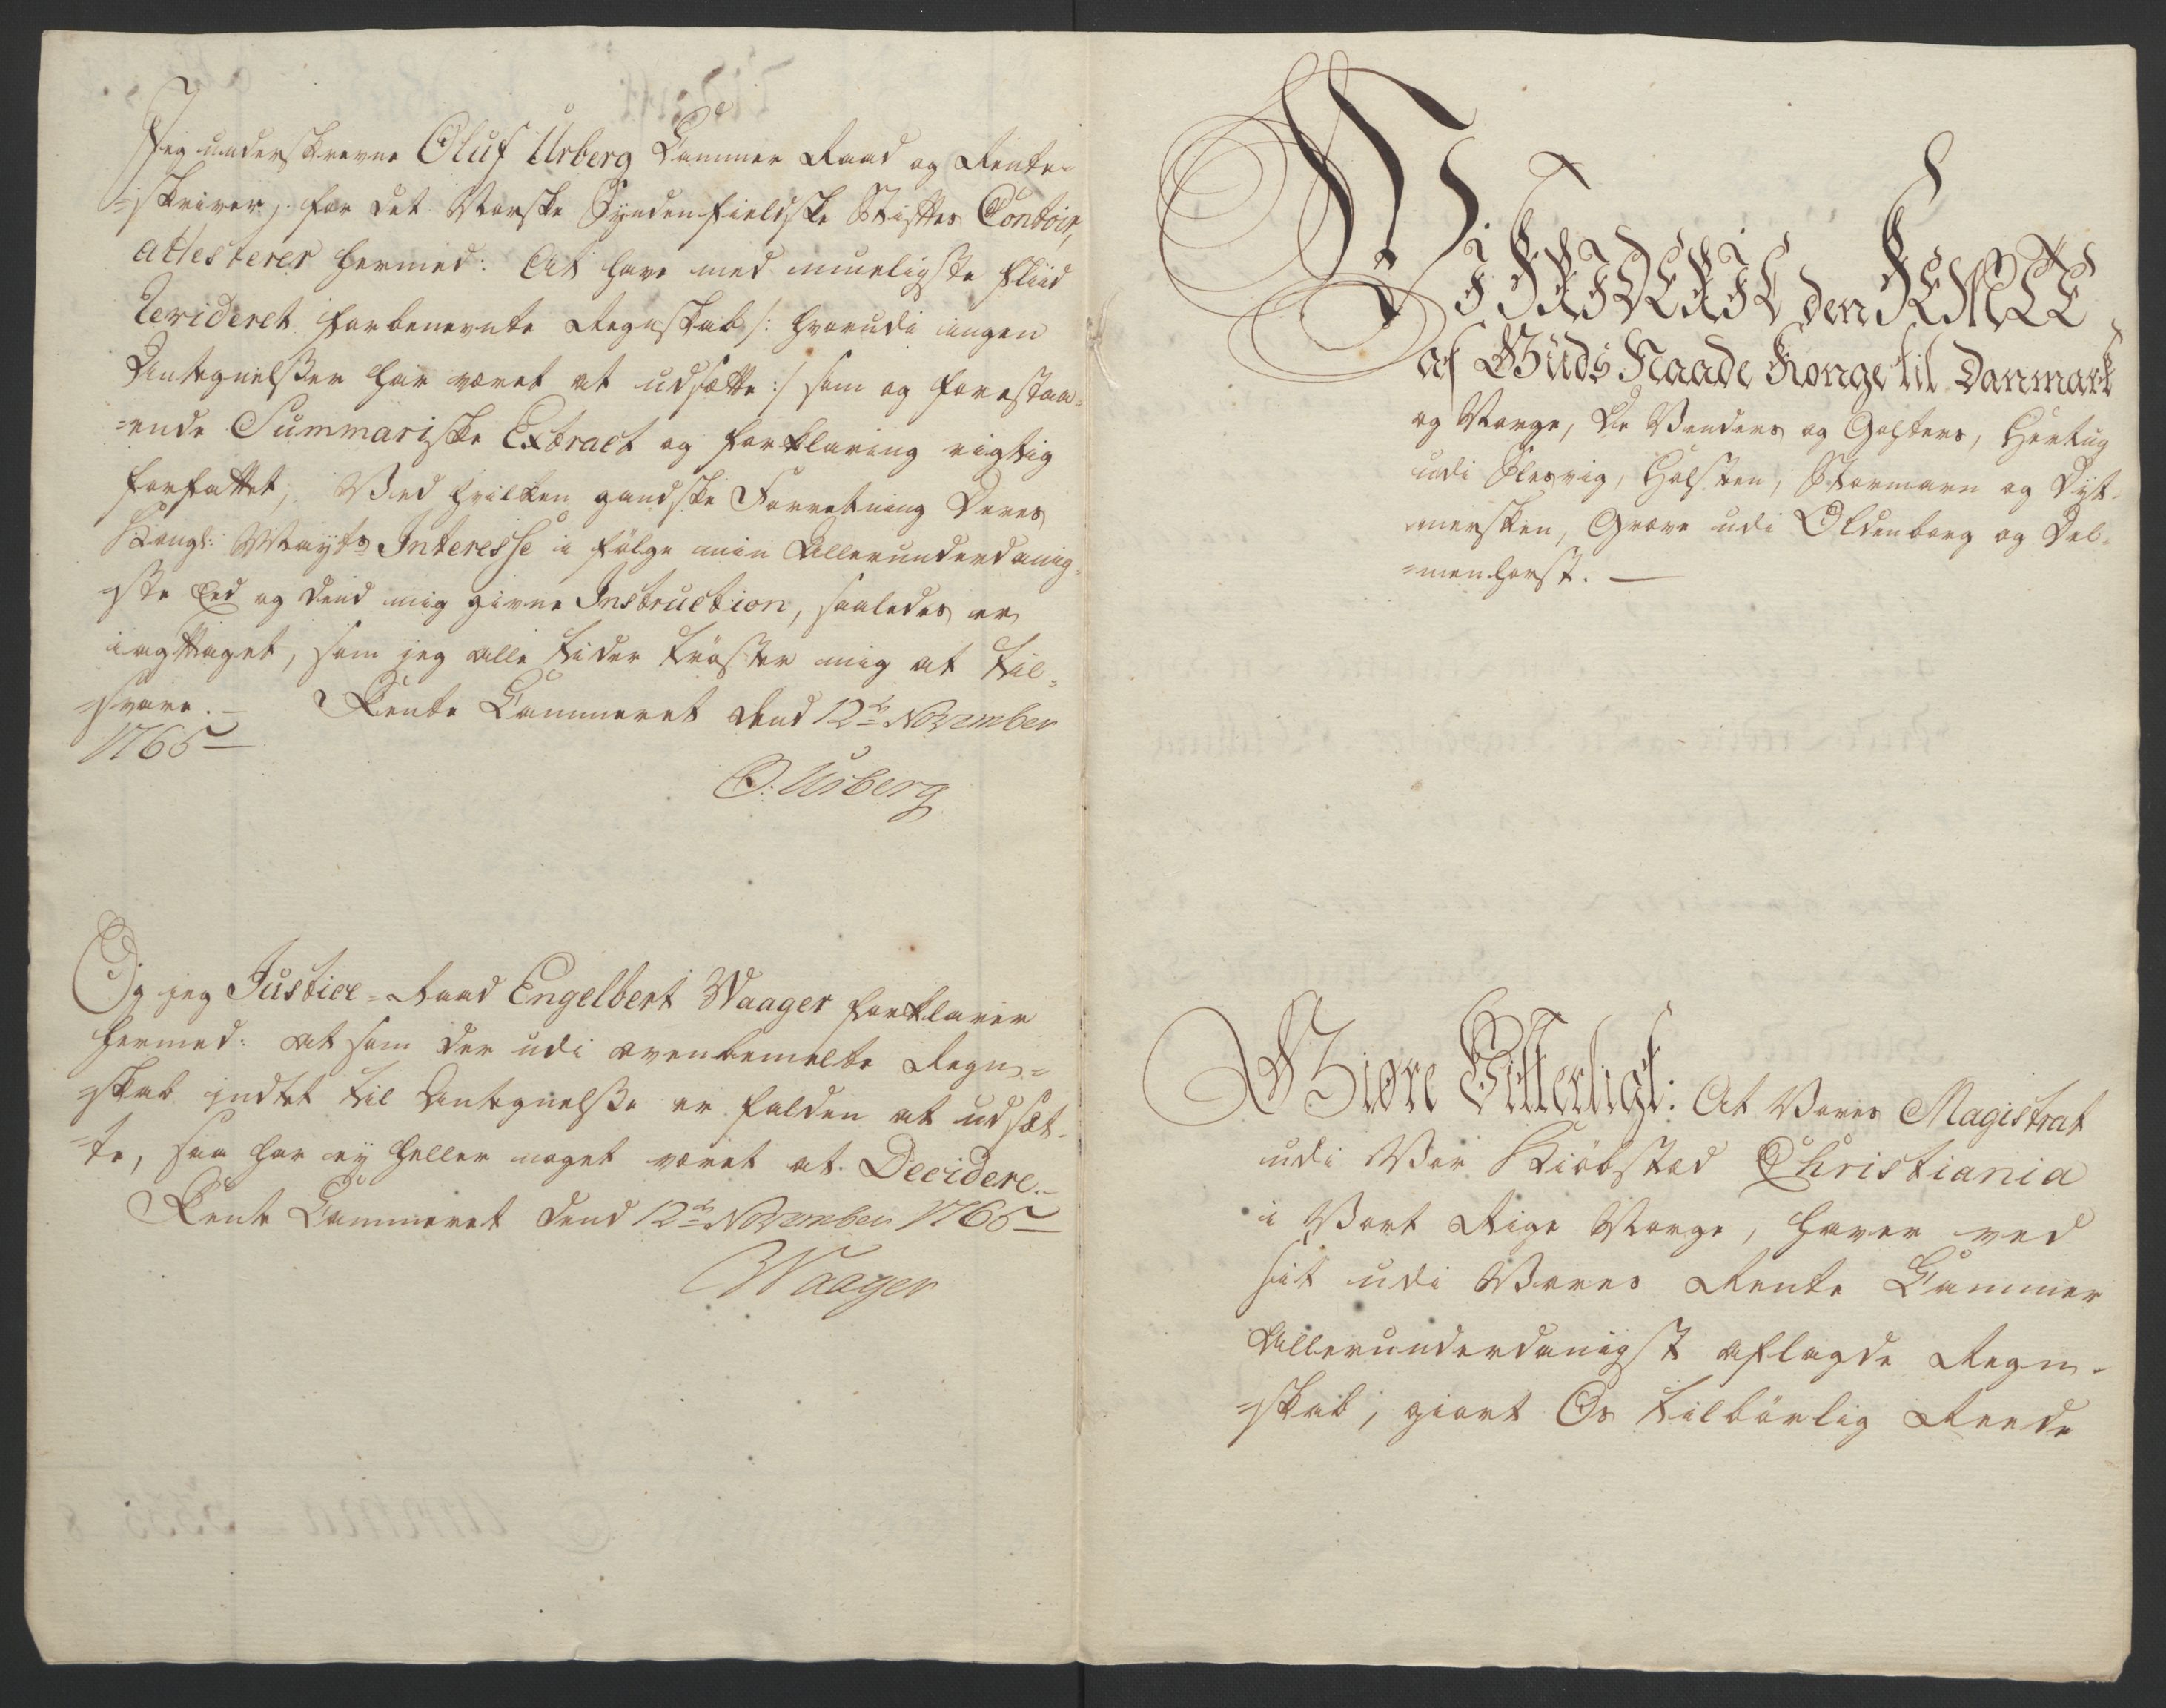 Jeg underskrevne Oluf Urberg Cammer Raad og Rente-
=skriver, for det Norske Syndenfieldske Stiftes Contoir,
attesterer hermed: At have med mueligste fliid
Revideret forbenevnte Regnskab /: hvorudi ingen
Antegnelsser har været at udsætte :/ som og forestaa-
=ende Summariske Extract og forklaring rigtig
forfattet, Ved hvilken gandske Forretning Deres
Kongl: Mayts Interesse i følge min Allerunderdanig-
ste Eed og dend mig givne Instruction, saaledes er
iagttaget, som jeg alle tider trøster mig at til-
=svare.- Rente Cammeret dend 12te November
1765
O. Urberg
Og jeg Justice-Raad Engelbert Waager forklarer
hermed: at som der udi ovenbemelte Regn-
skab intet til Antegnelsse er falden at udsæt-
=te, saa har ey heller noget været at Decidere.-
Rente Cammeret dend 12te November 1765
Waager
Vi FRIDERICH den FEMTE
af Guds Naade Konge til Danmark
og Norge, De Venders og Gothers, Hertug
udi Slesvig, Holsten, Stormarn og Dyt-
mersken, Greve udi Oldenborg og Del-
=menhorst. —
Giøre Vitterligt: At Vores Magistrat
udi Vor Kiøbstad Christiania
i Vort Rige Norge, haver ved
sit udi Vores Rente Cammer
Allerunderdanigst aflagde Regn-
=skab, giort Os tilbørlig Reede